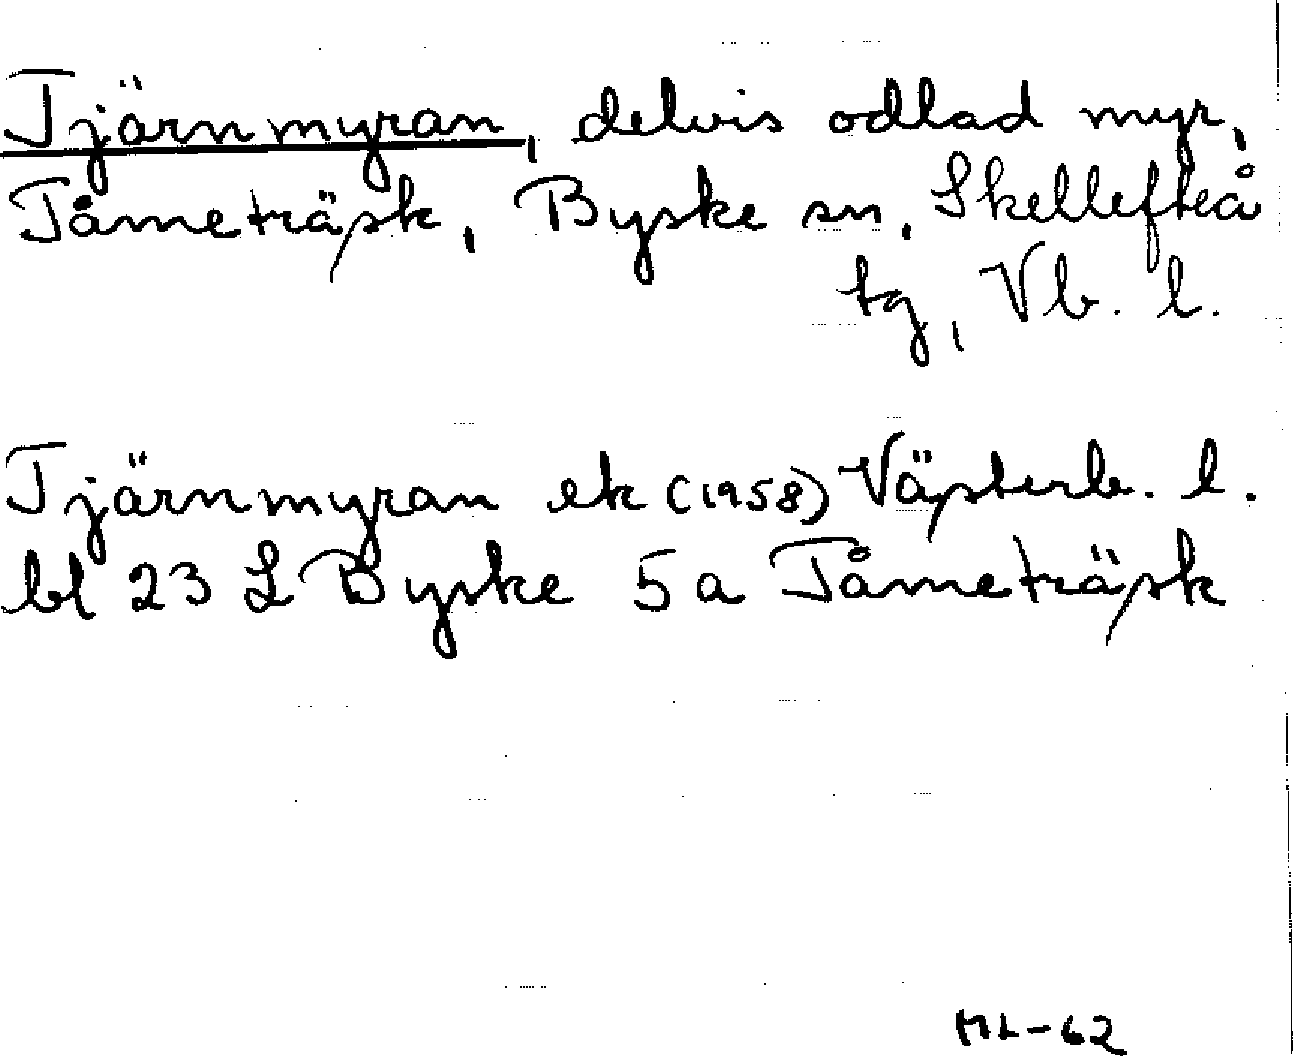 Tjärnmyran, delvis odlad myr,
Tåmeträsk, Byske sn, Skellefteå
tg, Vb. l.
Tjärnmyran ek (1958) Västerb. l.
bl 23 L Byske 5a Tåmeträsk
ML-62